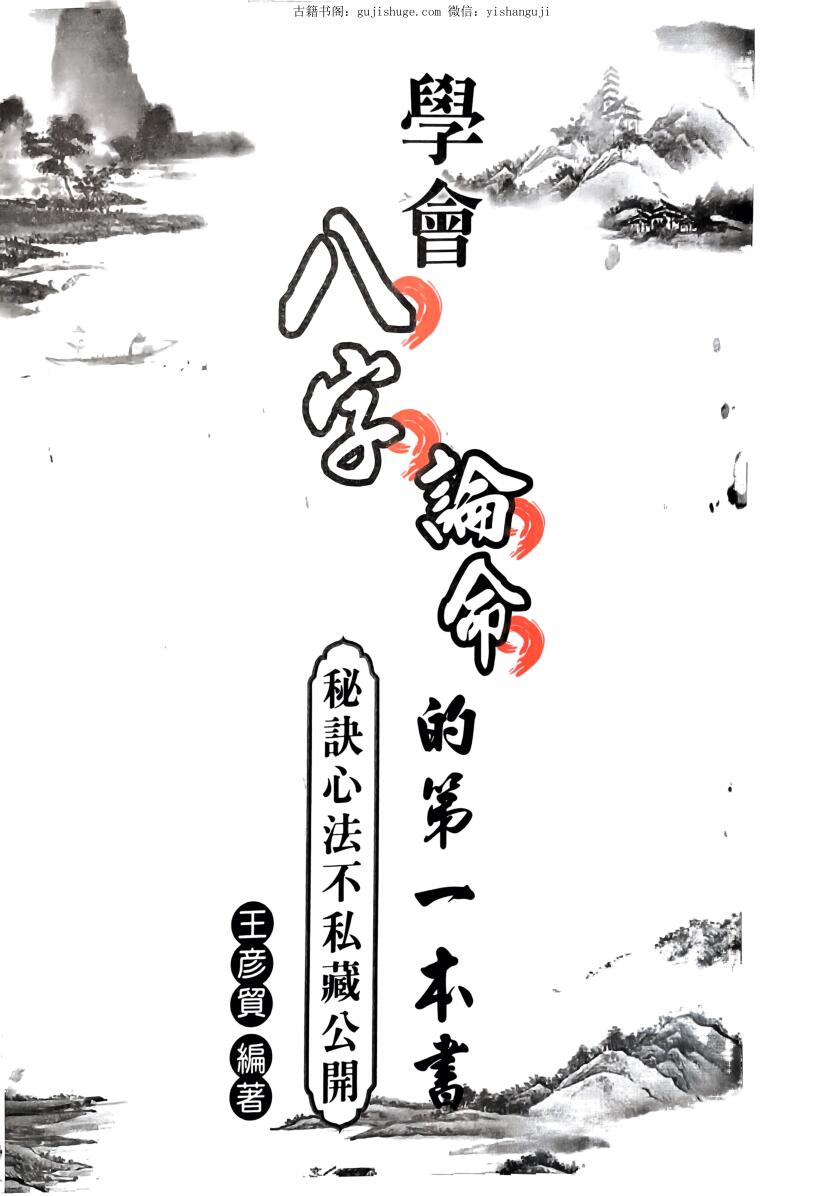 古籍书阁：gujishuge.com 微信：yishanguji
學會八字論命的第一本書
秘訣心法不私藏公開
王彦貿 編著